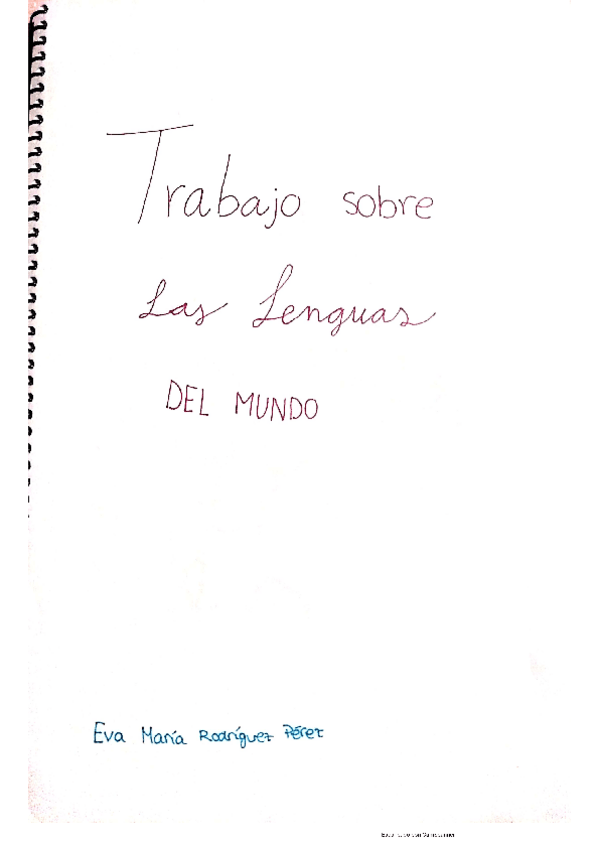 Trabajo sobre
Las Lenguas
DEL MUNDO
Eva María Rodríguez Pérez